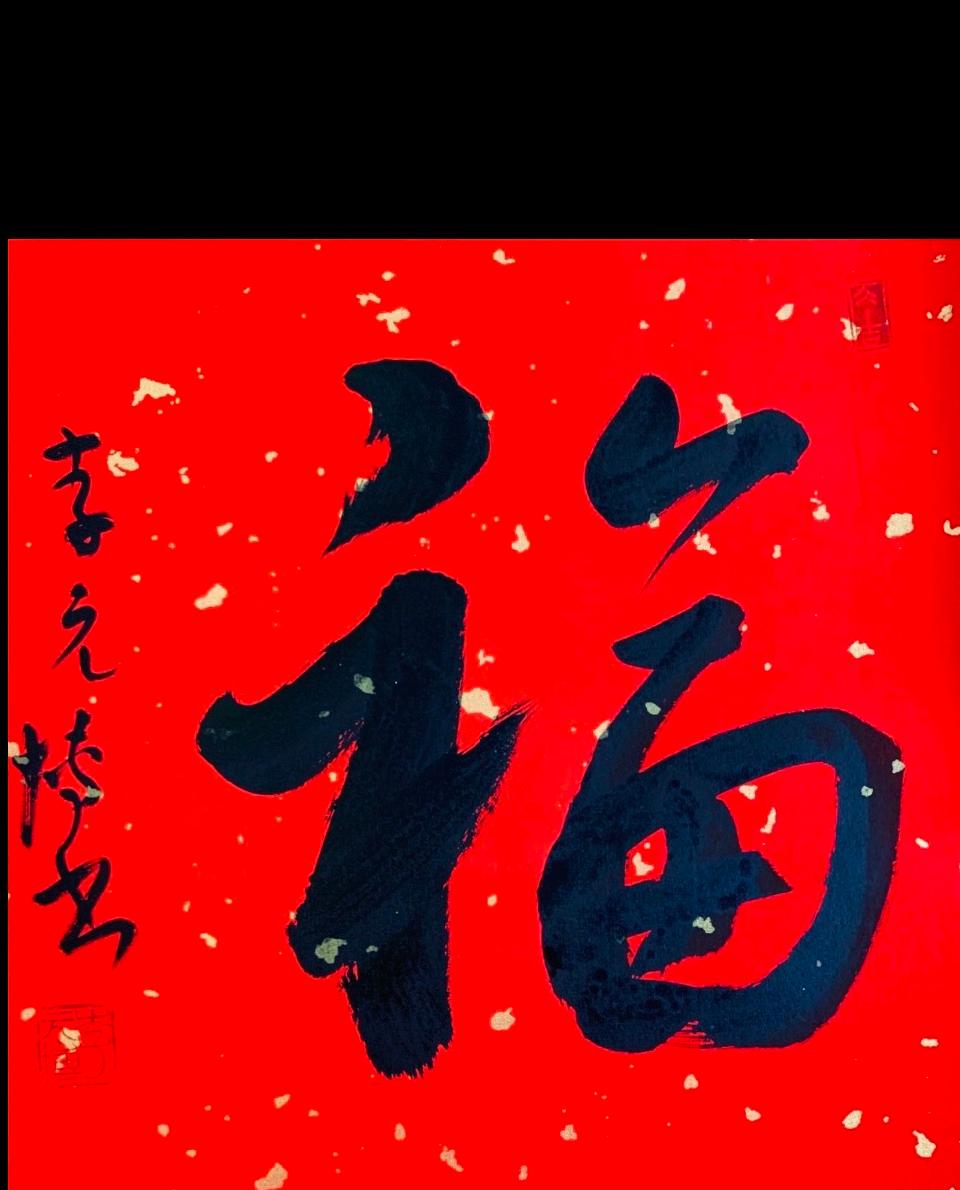 福
李元博书